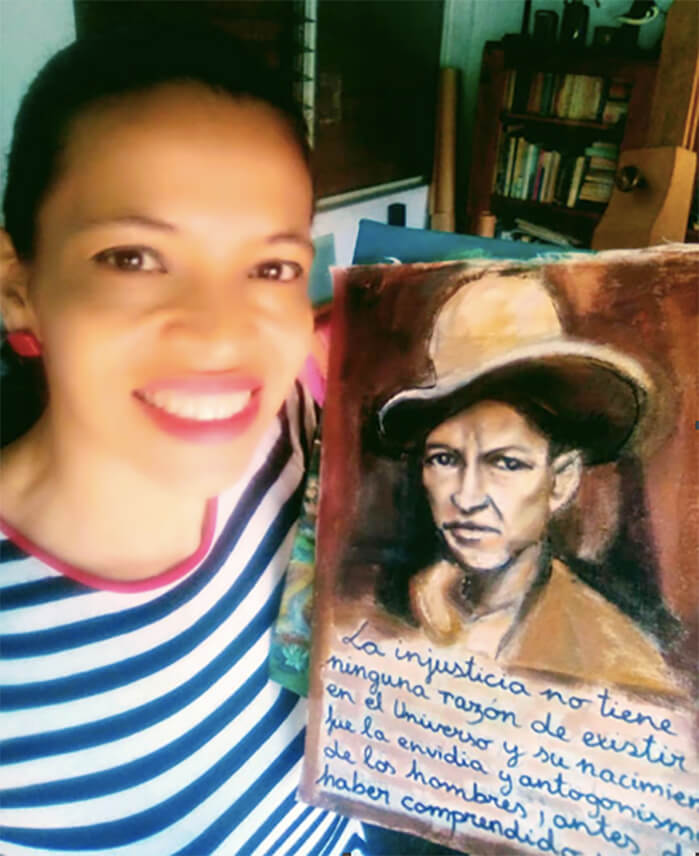 La injusticia no tiene
ninguna razón de existir
en el Universo y su nacimien
fue la envidia y antogonism
de los hombres, antes d
haber comprendido